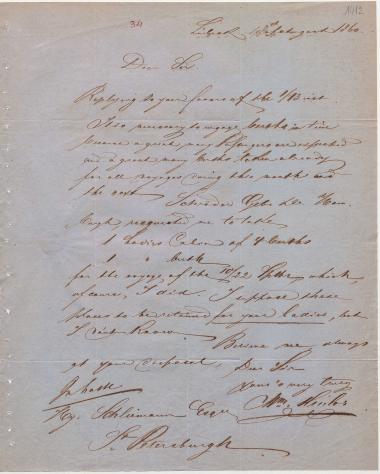 34
1412
Lübeck 18th August 1860
Dear Sir
Replying to your favor of the 1/13 inst.
It is necessary to engage berths in time
because a great many passengers are expected
and a great many berths taken already
for all voyages during this month and
the next. Schröder Gebr &
requested me to take
1 Ladies Cabin of 4 berths
1 " berth
for the voyage of the 10/22 which,
of course, I did. I suppose these
places to be retained for your Ladies, but
I don't know.
Believe me, always
at your disposal,
Dear Sir
Yours very truly
In haste
Hy. Schliemann Esqre
St. Petersburgh.